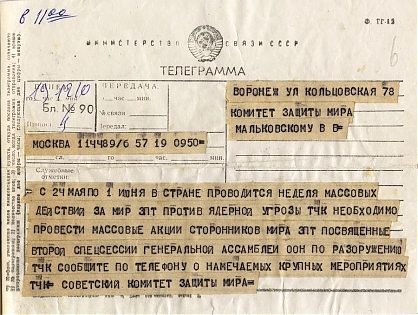 в 11 00
Ф. ТГ-13
МИНИСТЕРСТВО СВЯЗИ СССР
6
ТЕЛЕГРАММА
ПЕРЕДАЧА
19 12 10
час. мин.
Бл. № 90
№ связи
Передал:
ВОРОНЕЖ УЛ КОЛЬЦОВСКАЯ 78
КОМИТЕТ ЗАЩИТЫ МИРА
МАЛЬКОВСКОМУ В В=
МОСКВА 114489/6 57 19 0950=
го час. мин.
Служебные отметки:
С 24 МАЯ ПО 1 ИЮНЯ В СТРАНЕ ПРОВОДИТСЯ НЕДЕЛЯ МАССОВЫХ
ДЕЙСТВИЙ ЗА МИР ЗПТ ПРОТИВ ЯДЕРНОЙ УГРОЗЫ ТЧК НЕОБХОДИМО
ПРОВЕСТИ МАССОВЫЕ АКЦИИ СТОРОННИКОВ МИРА ЗПТ ПОСВЯЩЕННЫЕ
ВТОРОЙ СПЕЦСЕССИИ ГЕНЕРАЛЬНОЙ АССАМБЛЕИ ООН ПО РАЗОРУЖЕНИЮ
ТЧК СООБЩИТЕ ПО ТЕЛЕФОНУ О НАМЕЧАЕМЫХ КРУПНЫХ МЕРОПРИЯТИЯХ
ТЧК= СОВЕТСКИЙ КОМИТЕТ ЗАЩИТЫ МИРА=